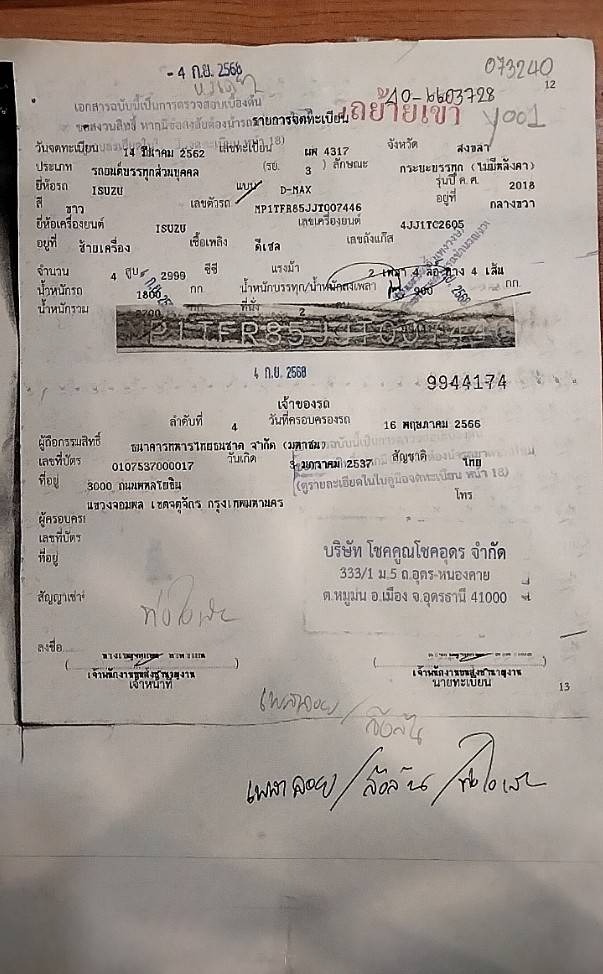 - 4 ก.ย. 2568
073240
12
เอกสารฉบับนี้เป็นการตรวจสอบเบื้องต้น
40-6603728
รถย้ายเข้า
y001
รายการจดทะเบียน
วันจดทะเบียน 14 มีนาคม 2562 เลขทะเบียน ผผ 4317 จังหวัด สงขลา
ประเภท รถยนต์บรรทุกส่วนบุคคล (รย. 3 ) ลักษณะ กระบะบรรทุก (ไม่มีหลังคา)
ยี่ห้อรถ ISUZU แบบ D-MAX รุ่นปี ค.ศ. 2018
สี ขาว เลขตัวรถ MP1TFR85JJT007446 อยู่ที่ กลางขวา
ยี่ห้อเครื่องยนต์ ISUZU เลขเครื่องยนต์ 4JJ1TC2605
อยู่ที่ ซ้ายเครื่อง เชื้อเพลิง ดีเซล เลขถังแก๊ส
จำนวน 4 สูบ 2999 ซีซี แรงม้า 2 เพลา 4 ล้อ ยาง 4 เส้น
น้ำหนักรถ 1800 กก. น้ำหนักบรรทุก/น้ำหนักลงเพลา 900 กก.
น้ำหนักรวม ที่นั่ง 2 คน
4 ก.ย. 2568
9944174
เจ้าของรถ
ลำดับที่ 4 วันที่ครอบครองรถ 16 พฤษภาคม 2566
ผู้ถือกรรมสิทธิ์ ธนาคารทหารไทยธนชาต จำกัด (มหาชน)
เลขที่บัตร 0107537000017 วันเกิด 3 มกราคม 2537 สัญชาติ ไทย
ที่อยู่ 3000 ถนนพหลโยธิน
(ดูรายละเอียดในใบคู่มือจดทะเบียน หน้า 18)
โทร
แขวงจอมพล เขตจตุจักร กรุงเทพมหานคร
ผู้ครอบครอง
เลขที่บัตร
ที่อยู่
บริษัท โชคคูณโชคอุดร จำกัด
333/1 ม.5 ถ.อุดร-หนองคาย
ต.หมูม่น อ.เมือง จ.อุดรธานี 41000
สัญญาเช่า
ท่อไอเสีย
ลงชื่อ
เจ้าพนักงานขนส่งชำนาญงาน
เจ้าพนักงานขนส่งชำนาญงาน
เจ้าหน้าที่
นายทะเบียน
13
เพลาลอย/
เพลาลอย/
/ท่อไอเสีย